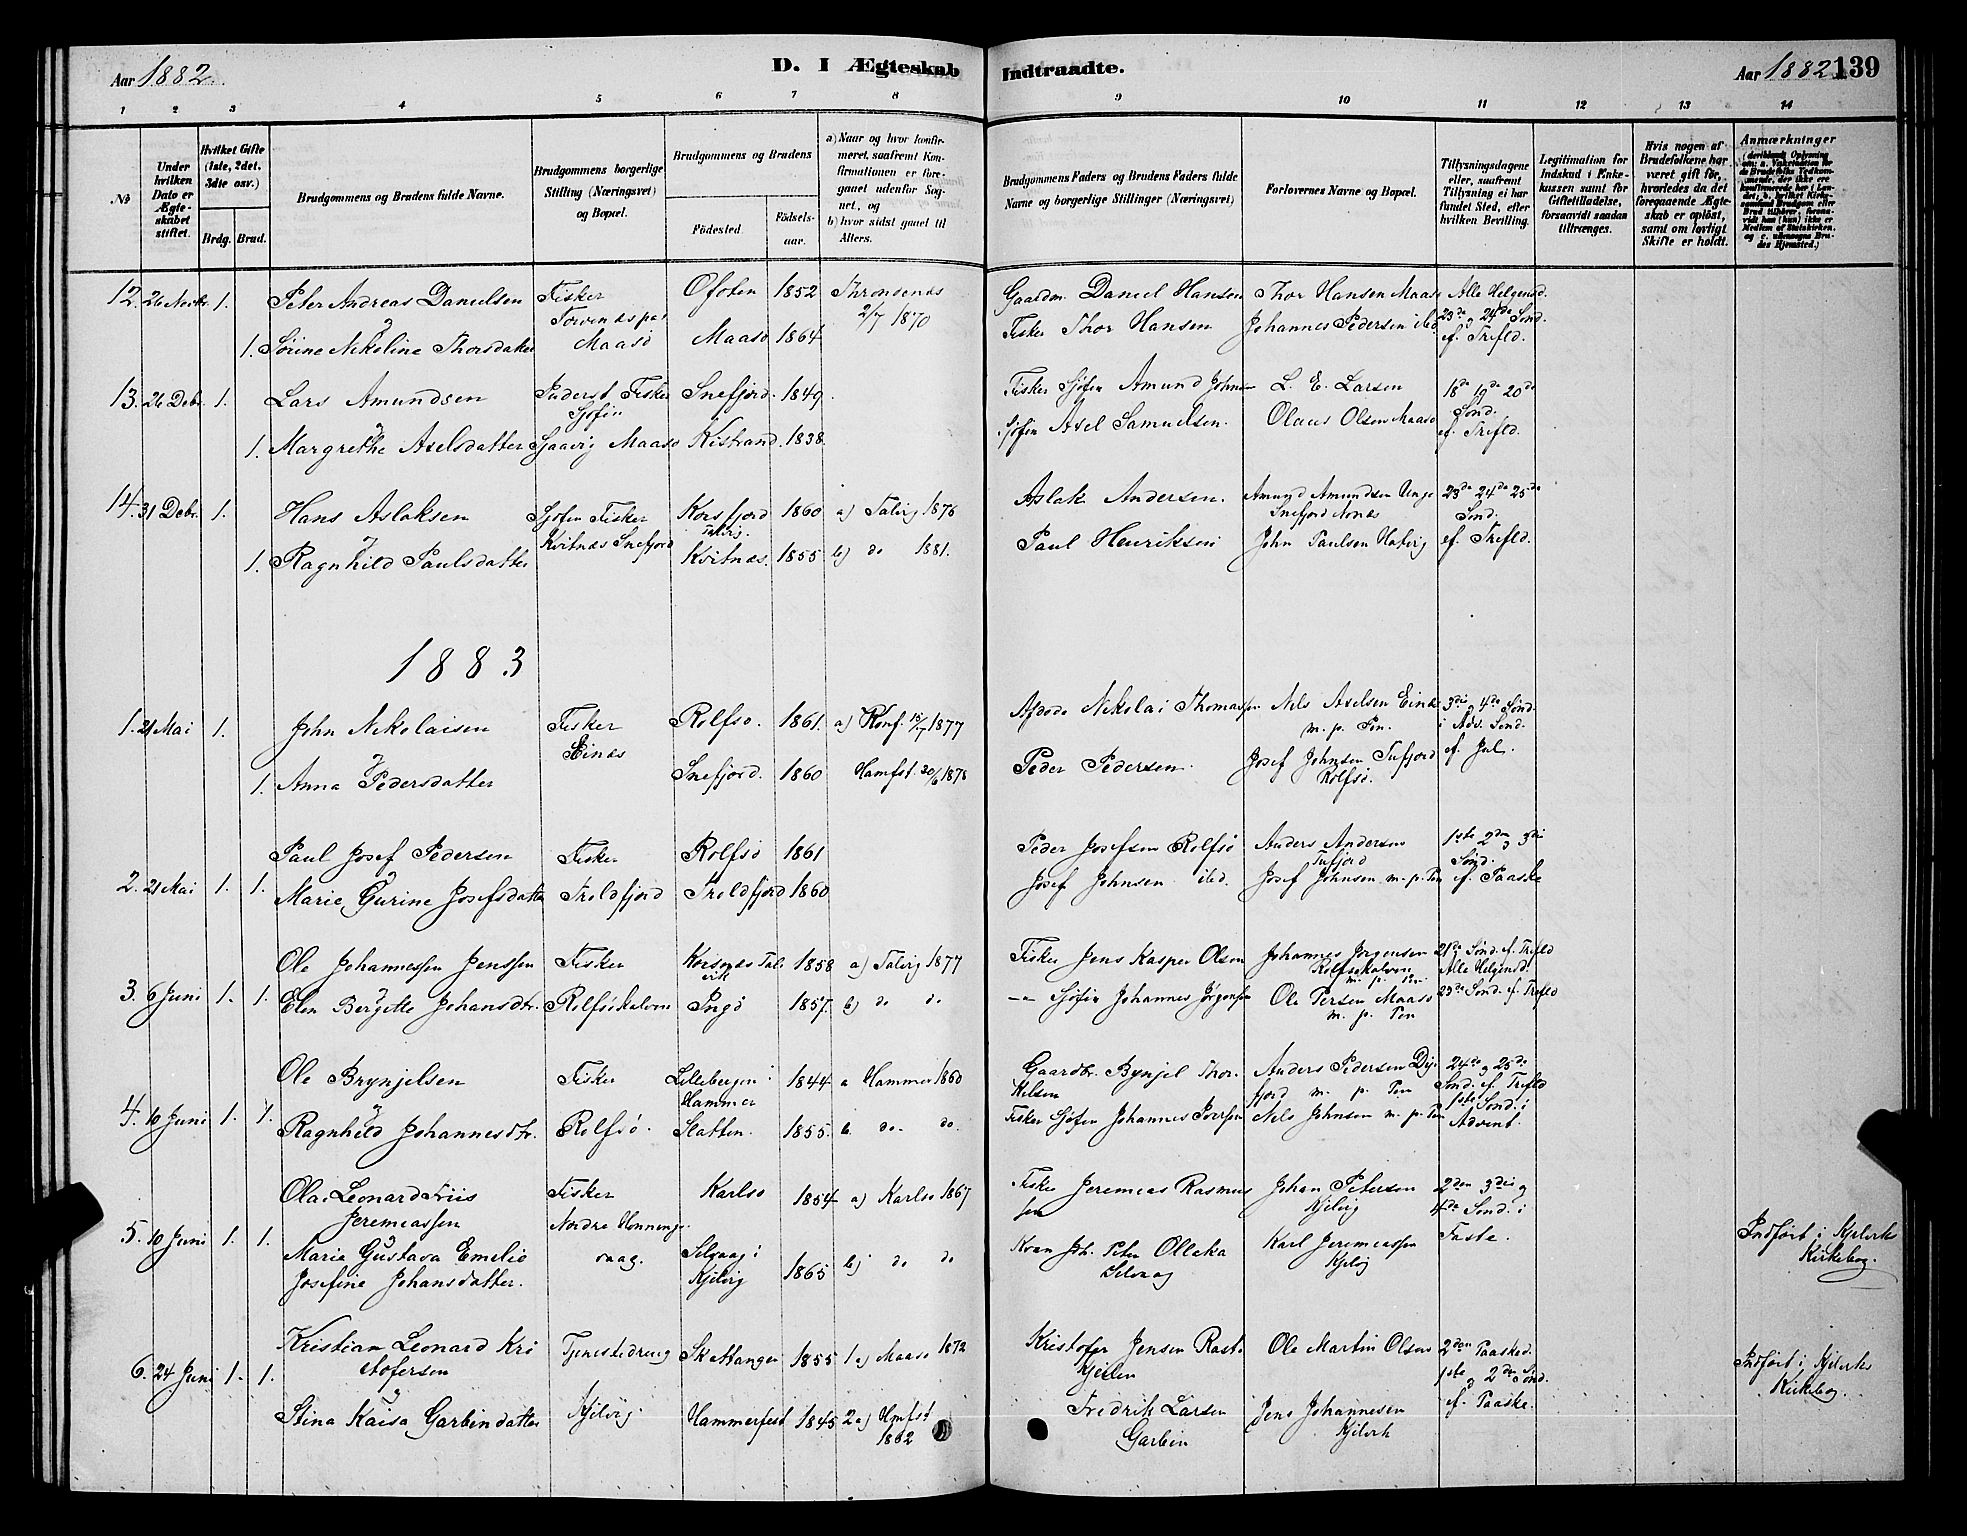 Aar 1882. D. I Ægteskab Indtraadte. Aar 1882 139
1 2 3 4 5 6 7 8 9 10 11 12 13 14
№
Under hvilken Dato er Ægteskabet stiftet.
Hvilket Gifte (1ste, 2det, 3die osv.)
Brdg. Brud.
Brudgommens og Brudens fulde Navne.
Brudgommens borgerlige Stilling (Næringsvei) og Bopæl.
Brudgommens og Brudens
Födested. Födselsaar.
a) Naar og hvor konfirmeret, saafremt Konfirmationen er foregaaet udenfor Sognet, og
b) hvor sidst gaaet til Alters.
Brudgommens Faders og Brudens Faders fulde Navne og borgerlige Stillinger (Næringsvei)
Forlovernes Navne og Bopæl.
Tillysningsdagene eller, saafremt Tillysning ei har fundet Sted, efter hvilken Bevilling.
Legitimation for Indskud i Enkekassen samt for Giftetilladelse, forsaavidt saadan tiltrænges.
Hvis nogen af Brudefolkene har været gift før, hvorledes da det foregaaende Ægteskab er oplöst, samt om lovligt Skifte er holdt.
Anmærkninger
12. 26 Novbr. 1. Peter Andreas Danielsen Fisker Ofoten 1852 Throndenæs Gaardm. Daniel Hansen Thor Hansen Maasø Alle Helgensd.
og Maasø 2/7 1870 23de og 24de Sønd.
1. Sørine Nikoline Thorsdatter Maasø 1864 Fisker Thor Hansen Johannes Pedersen ibid ef. Trefld.
13. 26 Debr. 1. Lars Amundsen Inderst Fisker Snefjord. 1849. Fisker Sjøfin Amund Johnsen L. E. Larsen 18de 19de 20de
og Sjøfin Sønd.
1. Margrethe Axelsdatter Maasø Kistrand. 1838. Sjøfin Axel Samuelsen. Olaus Olsen Maasø ef. Trefld.
14. 31 Debr. 1. Hans Aslaksen Sjøfin Fisker Korsfjord 1860 a) Talvig 1876 Aslak Andersen. Amund Amundsen 23de 24de 25de
og Kvitnæs Snefjord Talvig. Snefjord Sønd.
1. Ragnhild Paulsdatter Kvitnæs. 1855 b) do 1881. Paul Henriksen John Paulsen ef. Trefld.
1883
1. 21 Mai 1. John Nikolaisen Fisker Rolfsø. 1861. a) Konf. 15/7 1877 Afdøde Nikolai Thomassen Nils Axelsen Einæs 3die og 4de Sønd.
og Einæs m. p. Pen. i Adv. Sønd.
1. Anna Pedersdatter Snefjord. 1860 Hamfst. 1878 Peder Pedersen. Josef Johnsen Tufjord ef. Jul.
Rolfsø.
Paul Josef Pedersen Fisker Rolfsø 1861 Peder Josefsen Rolfsø Anders Andersen 1ste 2den og 3die
2. 21 Mai 1. 1. og Tufjord Sønd.
Marie Gurine Josefsdatter Troldfjord Troldfjord 1860 Josef Johnsen ibid. Josef Johnsen m. p. Pen ef. Paaske
Ole Johannessen Jenssen Fisker 1858 a) Talvig 1877 Fisker Jens Kasper Olsen Johannes Jørgensen 21de Sønd. f. Trefld
3. 6 Juni 1. 1. og m. p. Pen Alle Helgensd.
Elen Bergitte Johansdtr. Rolfsøhalvøn Ingø 1857. b) do do Sjøfin Johannes Jørgensen Ole Persen Maasø 23de Sønd. f. Trefld
m. p. Pen
Ole Brynjelsen Fisker Lillebergen i 1844 a Hammer 1860 Gaardbr. Bynjel Thor. Anders Pedersen 24de og 25de
4. 10 Juni 1. 1. og Hammer kelsen fjord m. p. Pen Sønd. ef. Trefld
Ragnhild Johannesdtr. Rolfsø. Slatten. 1855. b. do. do. Fisker Sjøfin Johannes Nils Johnsen m. p. Pen 1ste Sønd. i
Advent.
Olai Leonard Friis Fisker Karlsø 1854 a) Karlsø 1867 Fisker Jeremias Rasmus Johan Petersen 2den 3die og
Jeremiassen Nordre Honnings- sen Kjelvig 4de Sønd. i
5. 10 Juni 1. 1. og vaag. Faste.
Marie Gustava Emelie Selvaag i 1865 b) do do Kvæn Joh. Peter Olleka Karl Jeremiassen Indført i Kjelvik
Josefine Johansdatter. Kjelvig Selvaag Kjelvig Kirkebog.
Kristian Leonard Kri Tjenestedreng 1855 1 a) Maasø 1872 Kristofer Jensen Ole Martin Olsen 2den Paasked.
6. 24 Juni 1. 1. stofersen 1ste og 2den Sønd. Indført i Kjelviks
og ef. Paaske. Kirkebog.
Stina Kaisa Garbindatter Kjelvig. Hammerfest 1845 2 a) Hmfst Fredrik Larsen Jens Johannesen
1862 Garbin Kjelvik